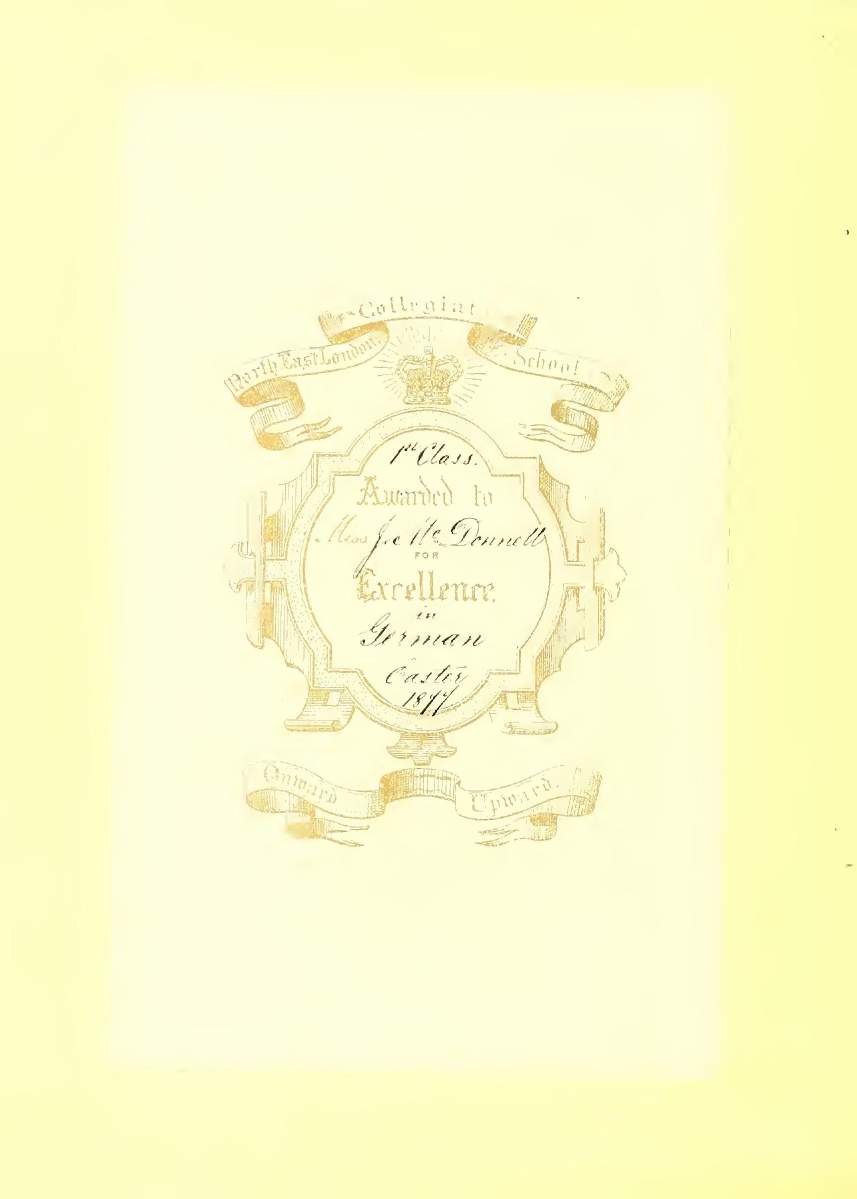 North East London
Collegiat
School
1st Class.
Awarded to
Miss J. Mc Donnell
FOR
Excellence.
in
German
Easter
1877
Onward
Upward.